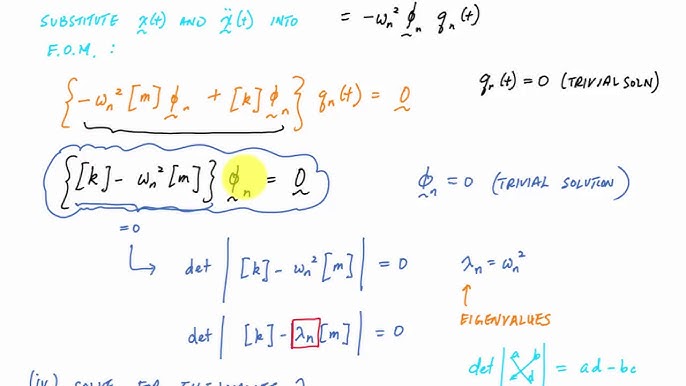 SUBSTITUTE x(t) AND ẍ(t) INTO
= -ωₙ² ϕₙ qₙ(t)
E.O.M. :
{-ωₙ² [m] ϕₙ + [k] ϕₙ} qₙ(t) = 0
qₙ(t) = 0 (TRIVIAL SOLN)
{[k] - ωₙ² [m]} ϕₙ = 0
ϕₙ = 0 (TRIVIAL SOLUTION)
= 0
det | [k] - ωₙ² [m] | = 0
λₙ = ωₙ²
EIGENVALUES
det | [k] - λₙ [m] | = 0
det | a b c d | = ad - bc
(iv) SOLVE FOR